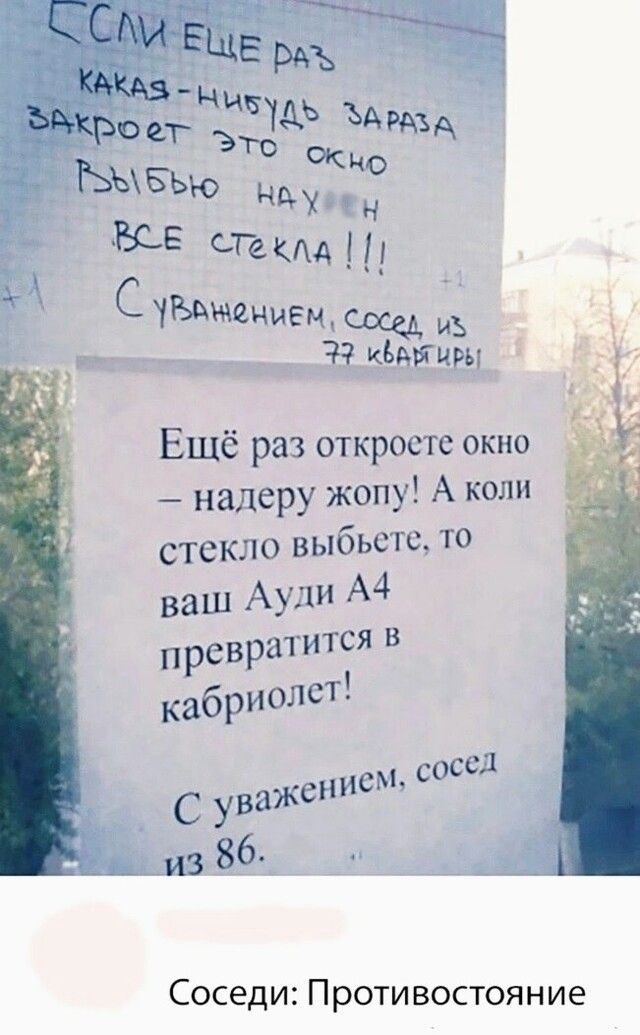 ЕСЛИ ЕЩЕ РАЗ
КАКАЯ-НИБУДЬ ЗАРАЗА
ЗАКРОЕТ ЭТО ОКНО
ВЫБЬЮ НАХ Н
ВСЕ СТЕКЛА!!!
+1 +1
С УВАЖЕНИЕМ, СОСЕД ИЗ
77 КВАРТИРЫ
Ещё раз откроете окно
– надеру жопу! А коли
стекло выбьете, то
ваш Ауди А4
превратится в
кабриолет!
С уважением, сосед
из 86.
Соседи: Противостояние